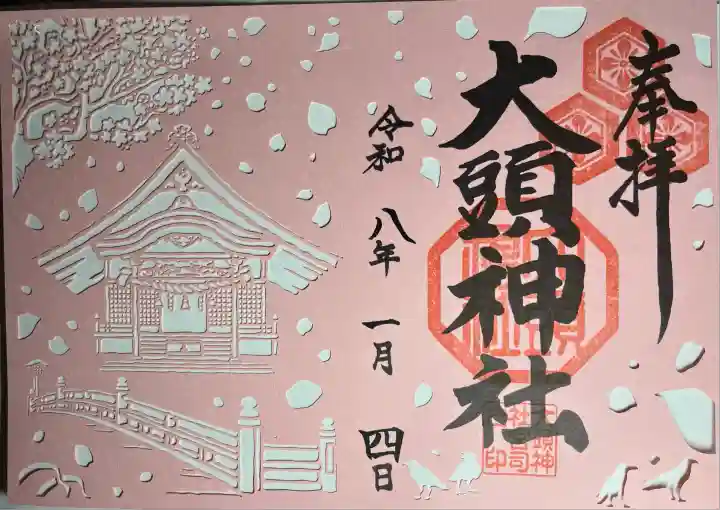 奉拝
大頭神社
令和八年一月四日
大頭神
社宮司
印